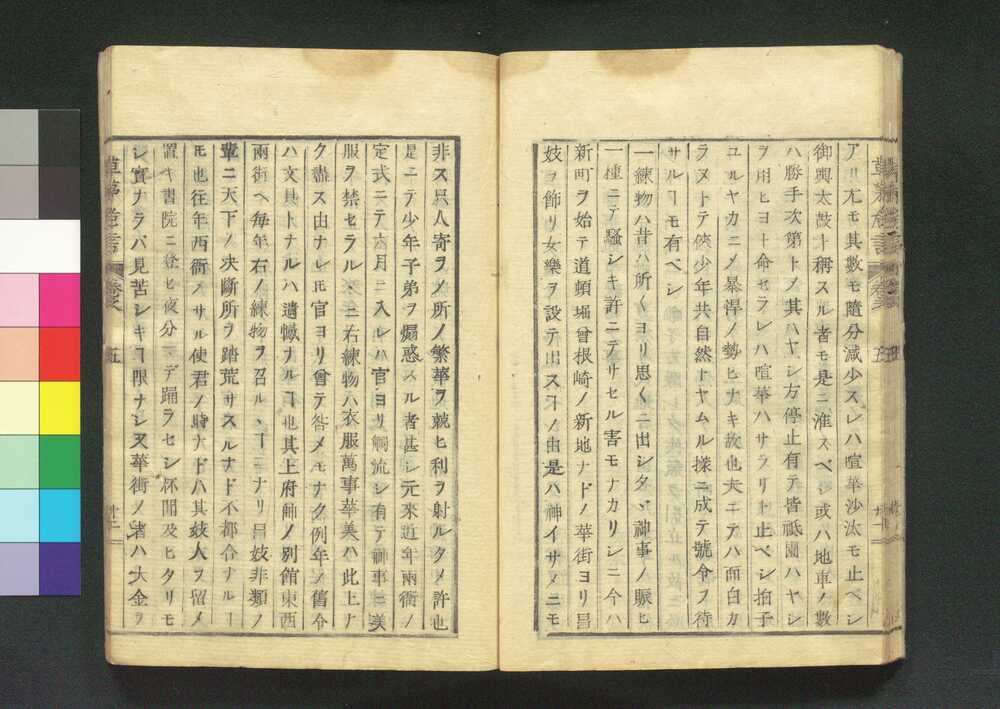 アリ尤モ其數モ隨分減少スレハ喧華沙汰モ止ベシ
御輿太鼓ト稱スル者モ是ニ准スベシ或ハ地車ノ數
ハ勝手次第トノ其ハヤシ方停止有テ皆祗園ハヤシ
ヲ用ヒヨト命セラレハ喧華ハサラリト止ベシ拍子
ユルヤカニメ暴悍ノ勢ヒナキ故也夫ニテハ面白カ
ラヌトテ俠少年共自然トヤムル樣ニ成テ號令ヲ待
サルヿモ有ベシ
一練物ハ昔ハ所〱ヨリ思〱ニ出シタヽ神事ノ賑ヒ
一種ニテ騷シキ許ニテサセル害モナカリシニ今ハ
新町ヲ始テ道頓堀曾根崎ノ新地ナドノ華街ヨリ昌
妓ヲ飾リ女樂ヲ設テ出スヿノ由是ハ神イサメニモ
草茅危言
五
非ス只人寄ヲメ所ノ繁華ヲ競ヒ利ヲ射ルタメ許也
是ニテ少年子弟ヲ煽惑スル者甚シ元來近年兩衢ノ
定式ニテ六月ニ入レハ官ヨリ觸流シ有テ神事ニ美
服ヲ禁セラル然ニ右練物ハ衣服萬事華美ハ此上ナ
ク盡ス由ナレ𪜈官ヨリ曾テ咎メモナク例年ノ舊令
ハ文具トナルハ遺憾ナルヿ也其上府師ノ別館東西
兩街ヘ毎年右ノ練物ヲ召ルヽヿニナリ昌妓非類ノ
輩ニ天下ノ决斷所ヲ踏荒サスルナド不都合ナルヿ
𪜈也往年西衙ノサル使君ノ時ナドハ其妓人ヲ留メ
置キ書院ニ登ヒ夜分マデ踊ラセシ杯聞及ヒタリモ
シ實ナラバ見苦シキヿ限ナシ又華街ノ者ハ大金ヲ
草茅危言
五